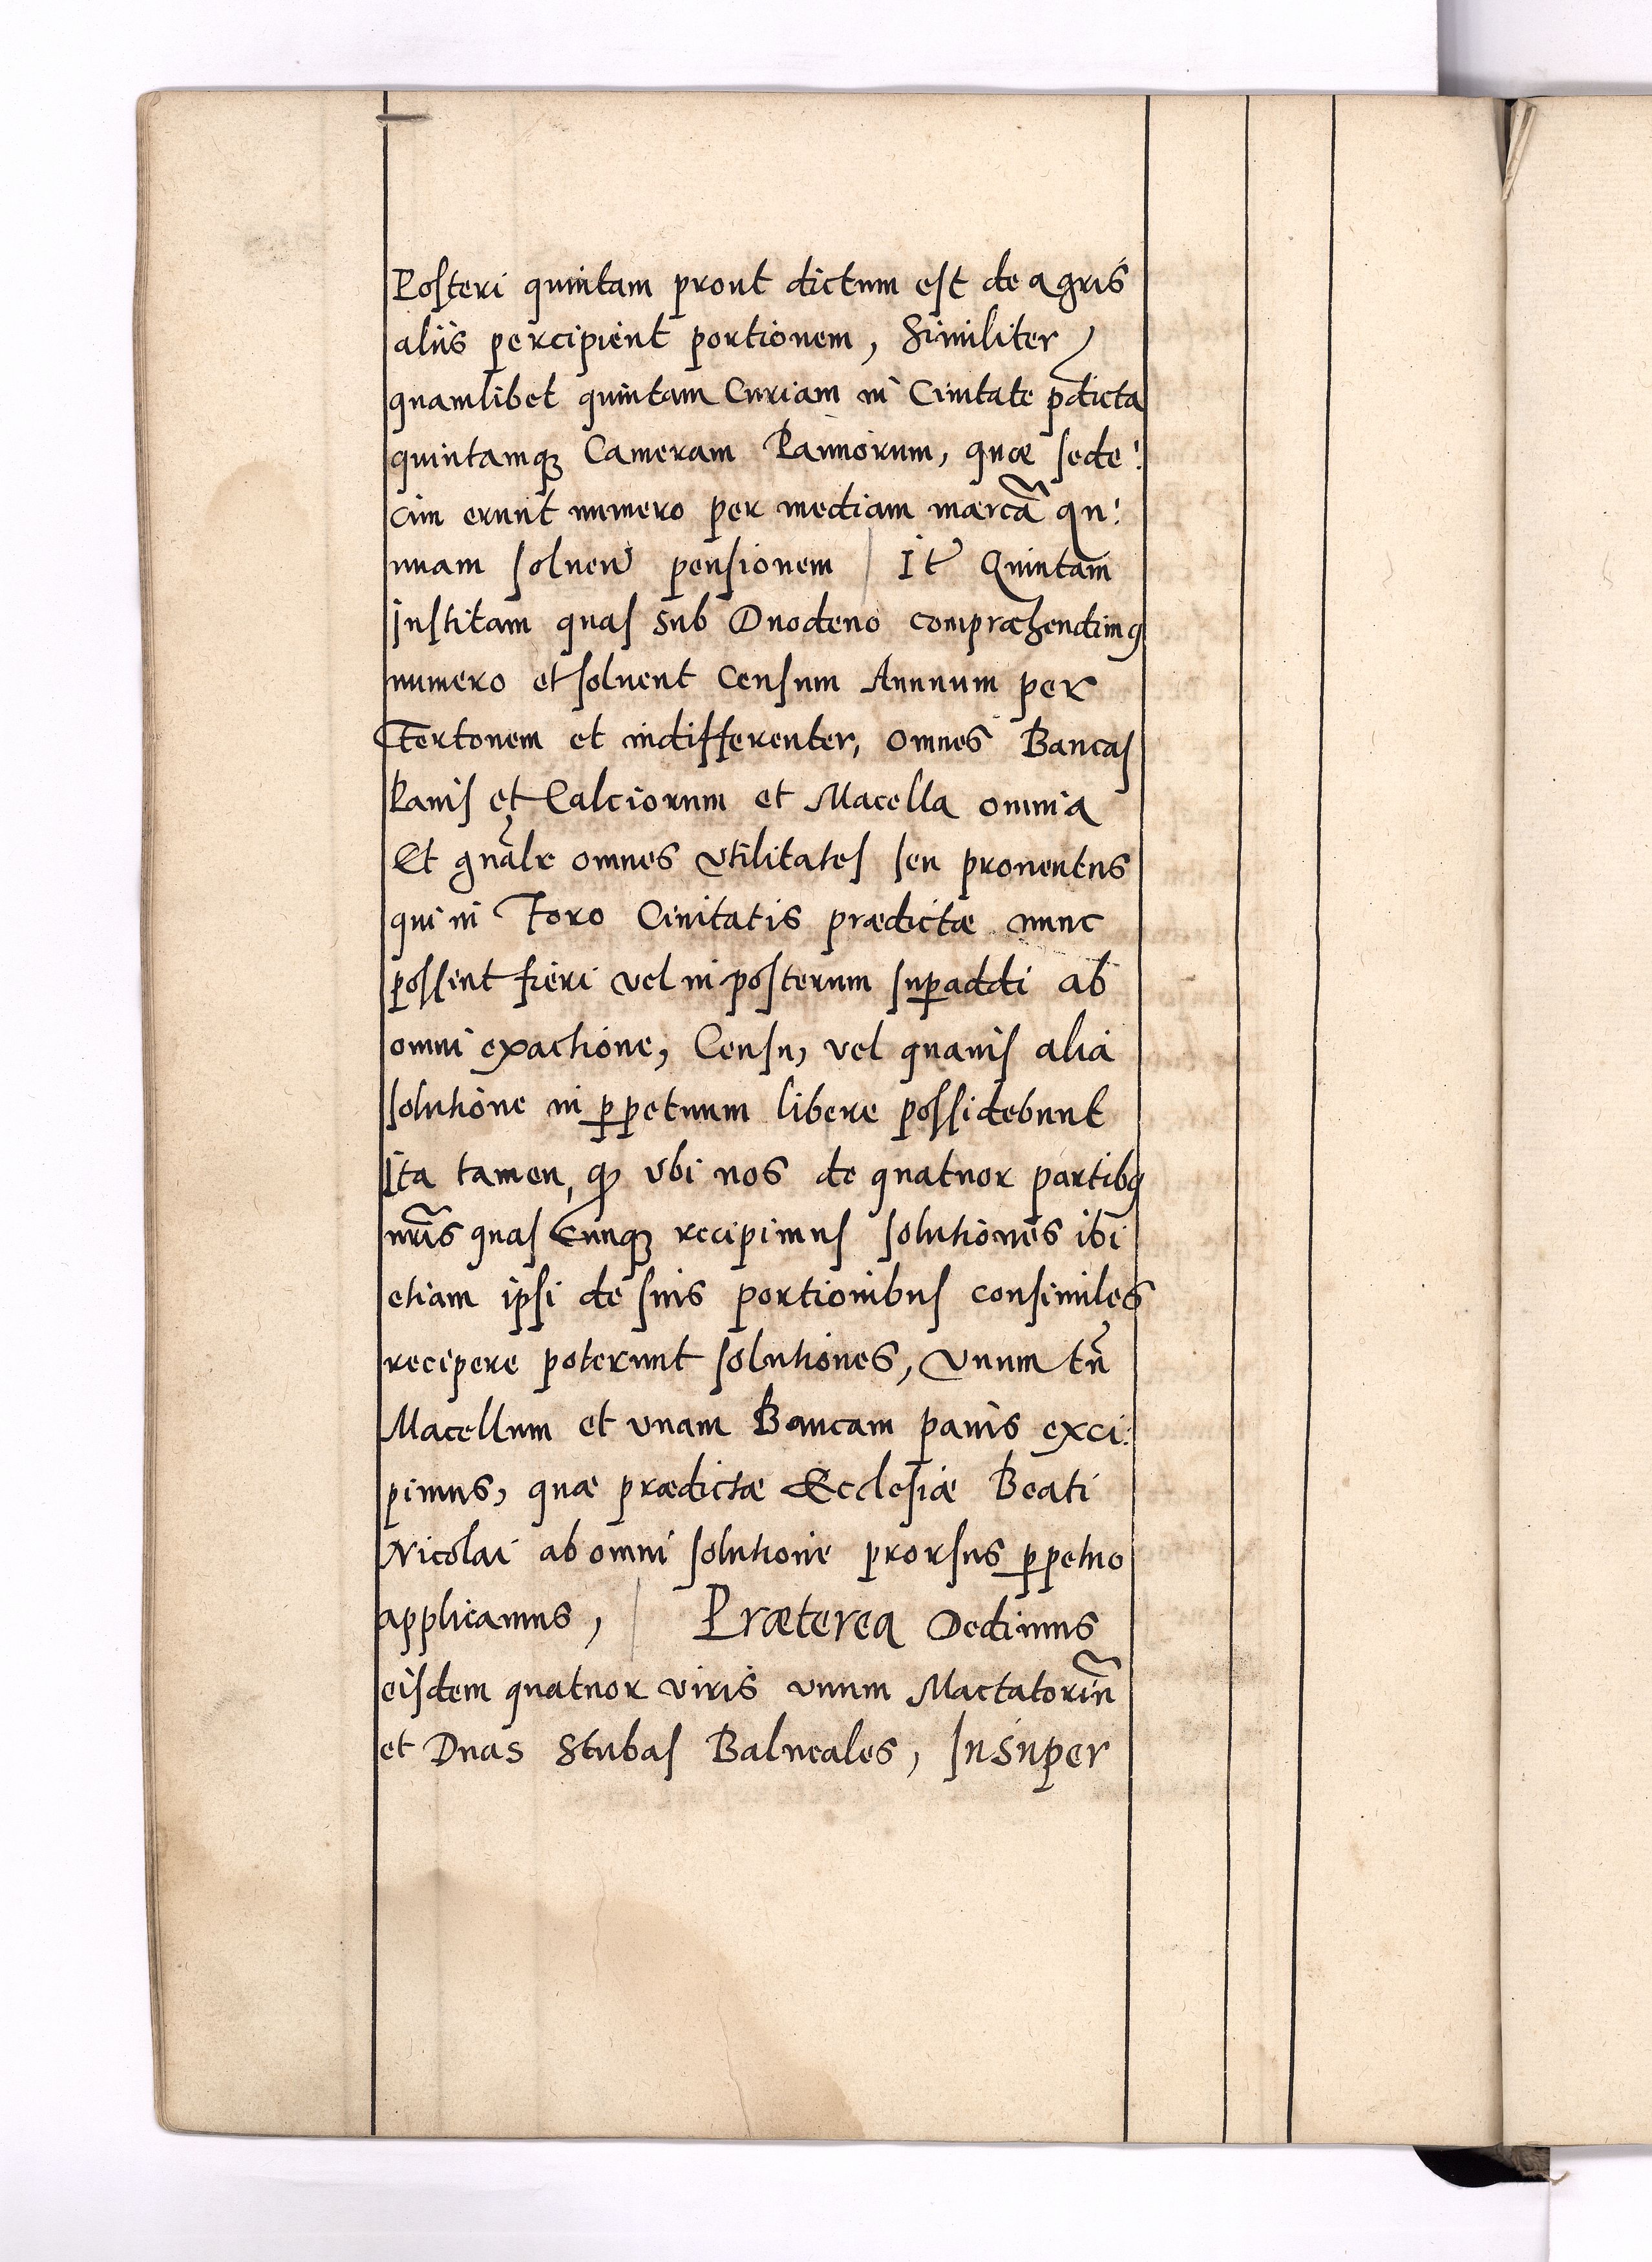 Posteri quintam prout dictum est de agris
aliis percipient portionem, Similiter
quamlibet quintam Curiam in Ciuitate pdicta
quintamqȝ Cameram Pannorum, quæ sede:
cim erunt numero per mediam marcã qu:
nuam soluen pensionem / It Quintam
Institam quas sub Duodeno compræhendimꝰ
numero et soluent Censum Annuum per
Fertonem et indifferenter, omnes Bancas
Panis et Calciorum et Macella omnia
Et gnãlr omnes vtilitates seu prouentus
qui in Foro Ciuitatis prædictæ nunc
possent fieri vel in posterum suꝑaddi ab
omni exactione, Censu, vel quauis alia
solutione in ꝑpetuum libere possidebunt
Ita tamen, qꝫ vbi nos de quatuor partibꝰ
nr̃is quas Cunqȝ recipimus solutiones ibi
etiam ipsi de suis portionibus consimiles
recipere poterunt solutiones, vnum tñ
Macellum et vnam Bancam panis exci:
pimus, quæ prædictæ Ecclesiæ Beati
Nicolai ab omni solutione prorsus ꝑpetuo
applicamus, / Præterea Dedimus
eisdem quatuor viris vnum Mactatoriũ
et Duas Stubas Balneales, Insuper